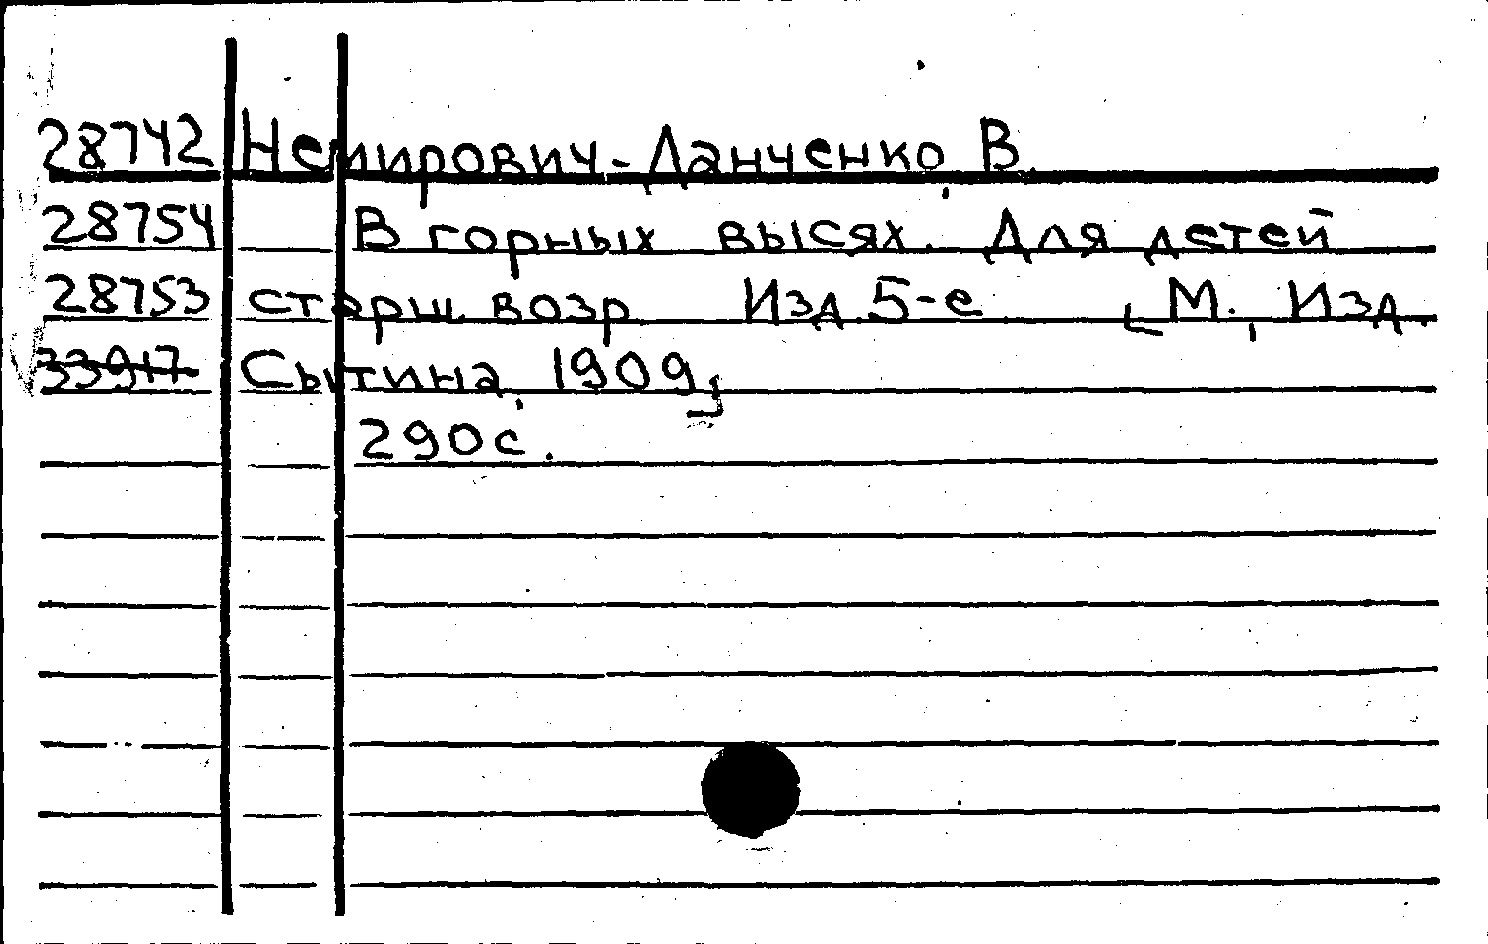 28742 Немирович-Данченко, В.
28754 В горных высях. Для детей
28753 старш. возр. Изд. 5-е. [М., Изд.
33917 Сытина, 1909]
290 с.